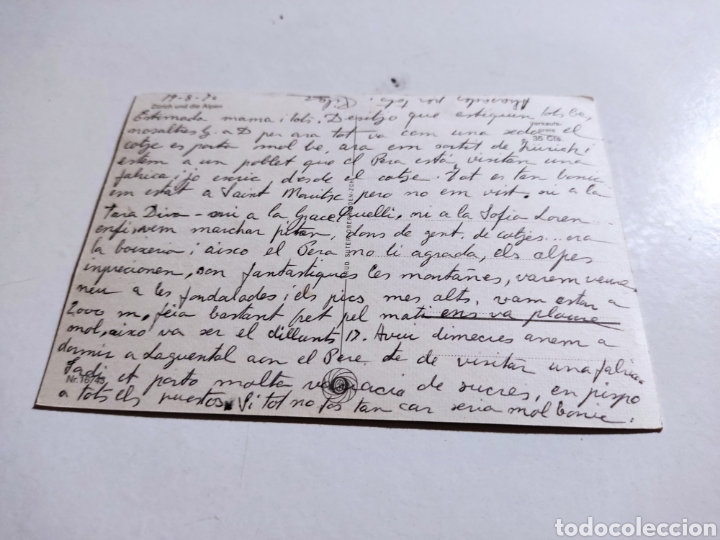 19-8-70
Zürich und die Alpen
Estimada mama i tots. Desitjo que estigueu tots be,
nosaltres g. a D per ara tot va com una seda, el
cotje es porta mol be, ara em sortit de Zurich i
estem a un poblet que el Pera está visitan una
fabrica i jo escric desde el cotje. Tot es tan bonic
em estat a Saint Moritz pero no em vist. ni a la
Fara Diva - ni a la Grace Quelli. ni a la Sofia Loren
enfi varem marchar pitan, dons de gent, de cotjes... era
la boixeria i aixo el Pera no li agrada, els alpes
inprecionen, son fantastiques les montañes, varem veure
neu a les fondalades i els pics mes alts, vam estar a
2000 m, feia bastant fret pel mati ens va ploure
mol, aixo va ser el dilluns 17. Avui dimecres anem a
dormir a aon el Pere te de visitar una fabrica.
molta de sucres, en
a tots els puestos. Si tot no fos tan car seria mol bonic.
Nr. 16743
todocoleccion